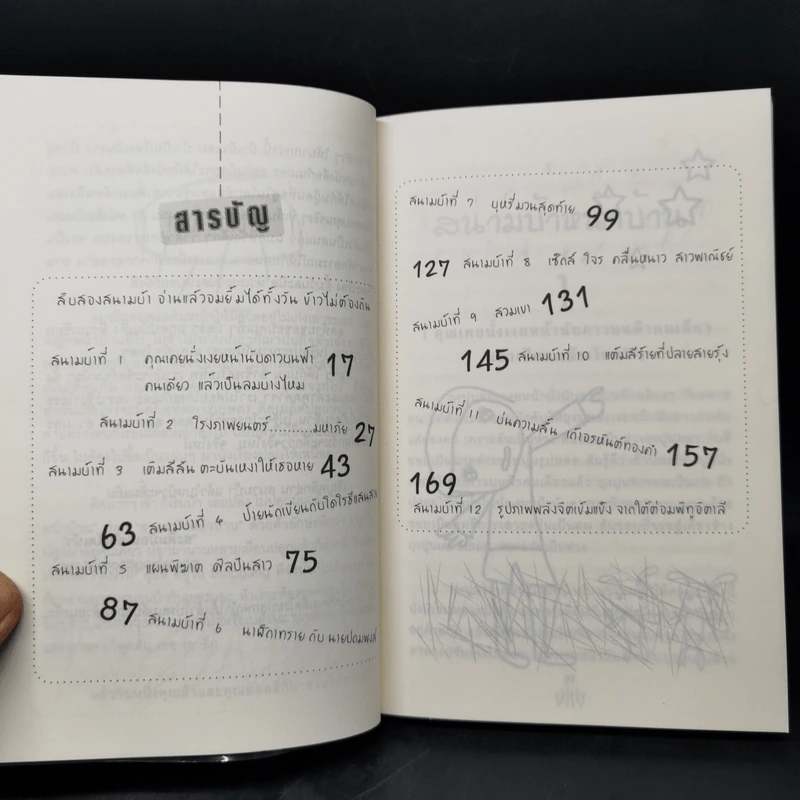 สารบัญ
สิบสองสนามบ้า อ่านแล้วอมยิ้มได้ทั้งวัน ข้าวไม่ต้องกิน
สนามบ้าที่ 1 คุณเคยนั่งเงยหน้านับดาวบนฟ้า 17
คนเดียว แล้วเป็นลมบ้างไหม
สนามบ้าที่ 2 โรงภาพยนตร์..........มหาภัย 27
สนามบ้าที่ 3 เติมสีสัน ตะบันเหงาให้เธอหาย 43
63 สนามบ้าที่ 4 ป้ายนักเขียนกับไดโรซี่แสนสวย
สนามบ้าที่ 5 แผนพิฆาต ศิลปินสาว 75
87 สนามบ้าที่ 6 นาฬิกาทราย กับ นายปฤมพงส์
สนามบ้าที่ 7 บุหรี่มวนสุดท้าย 99
127 สนามบ้าที่ 8 เซ็กส์ โจร คลื่นหนาว สาวพาณิชย์
สนามบ้าที่ 9 สวมเขา 131
145 สนามบ้าที่ 10 แต้มสีร้ายที่ปลายสายรุ้ง
สนามบ้าที่ 11 บ่นความสั้น เก้าอรหันต์ทองคำ 157
169
สนามบ้าที่ 12 รูปภาพพลังจิตเข้มแข็ง จากใต้ต่อมพิทูอิตารี